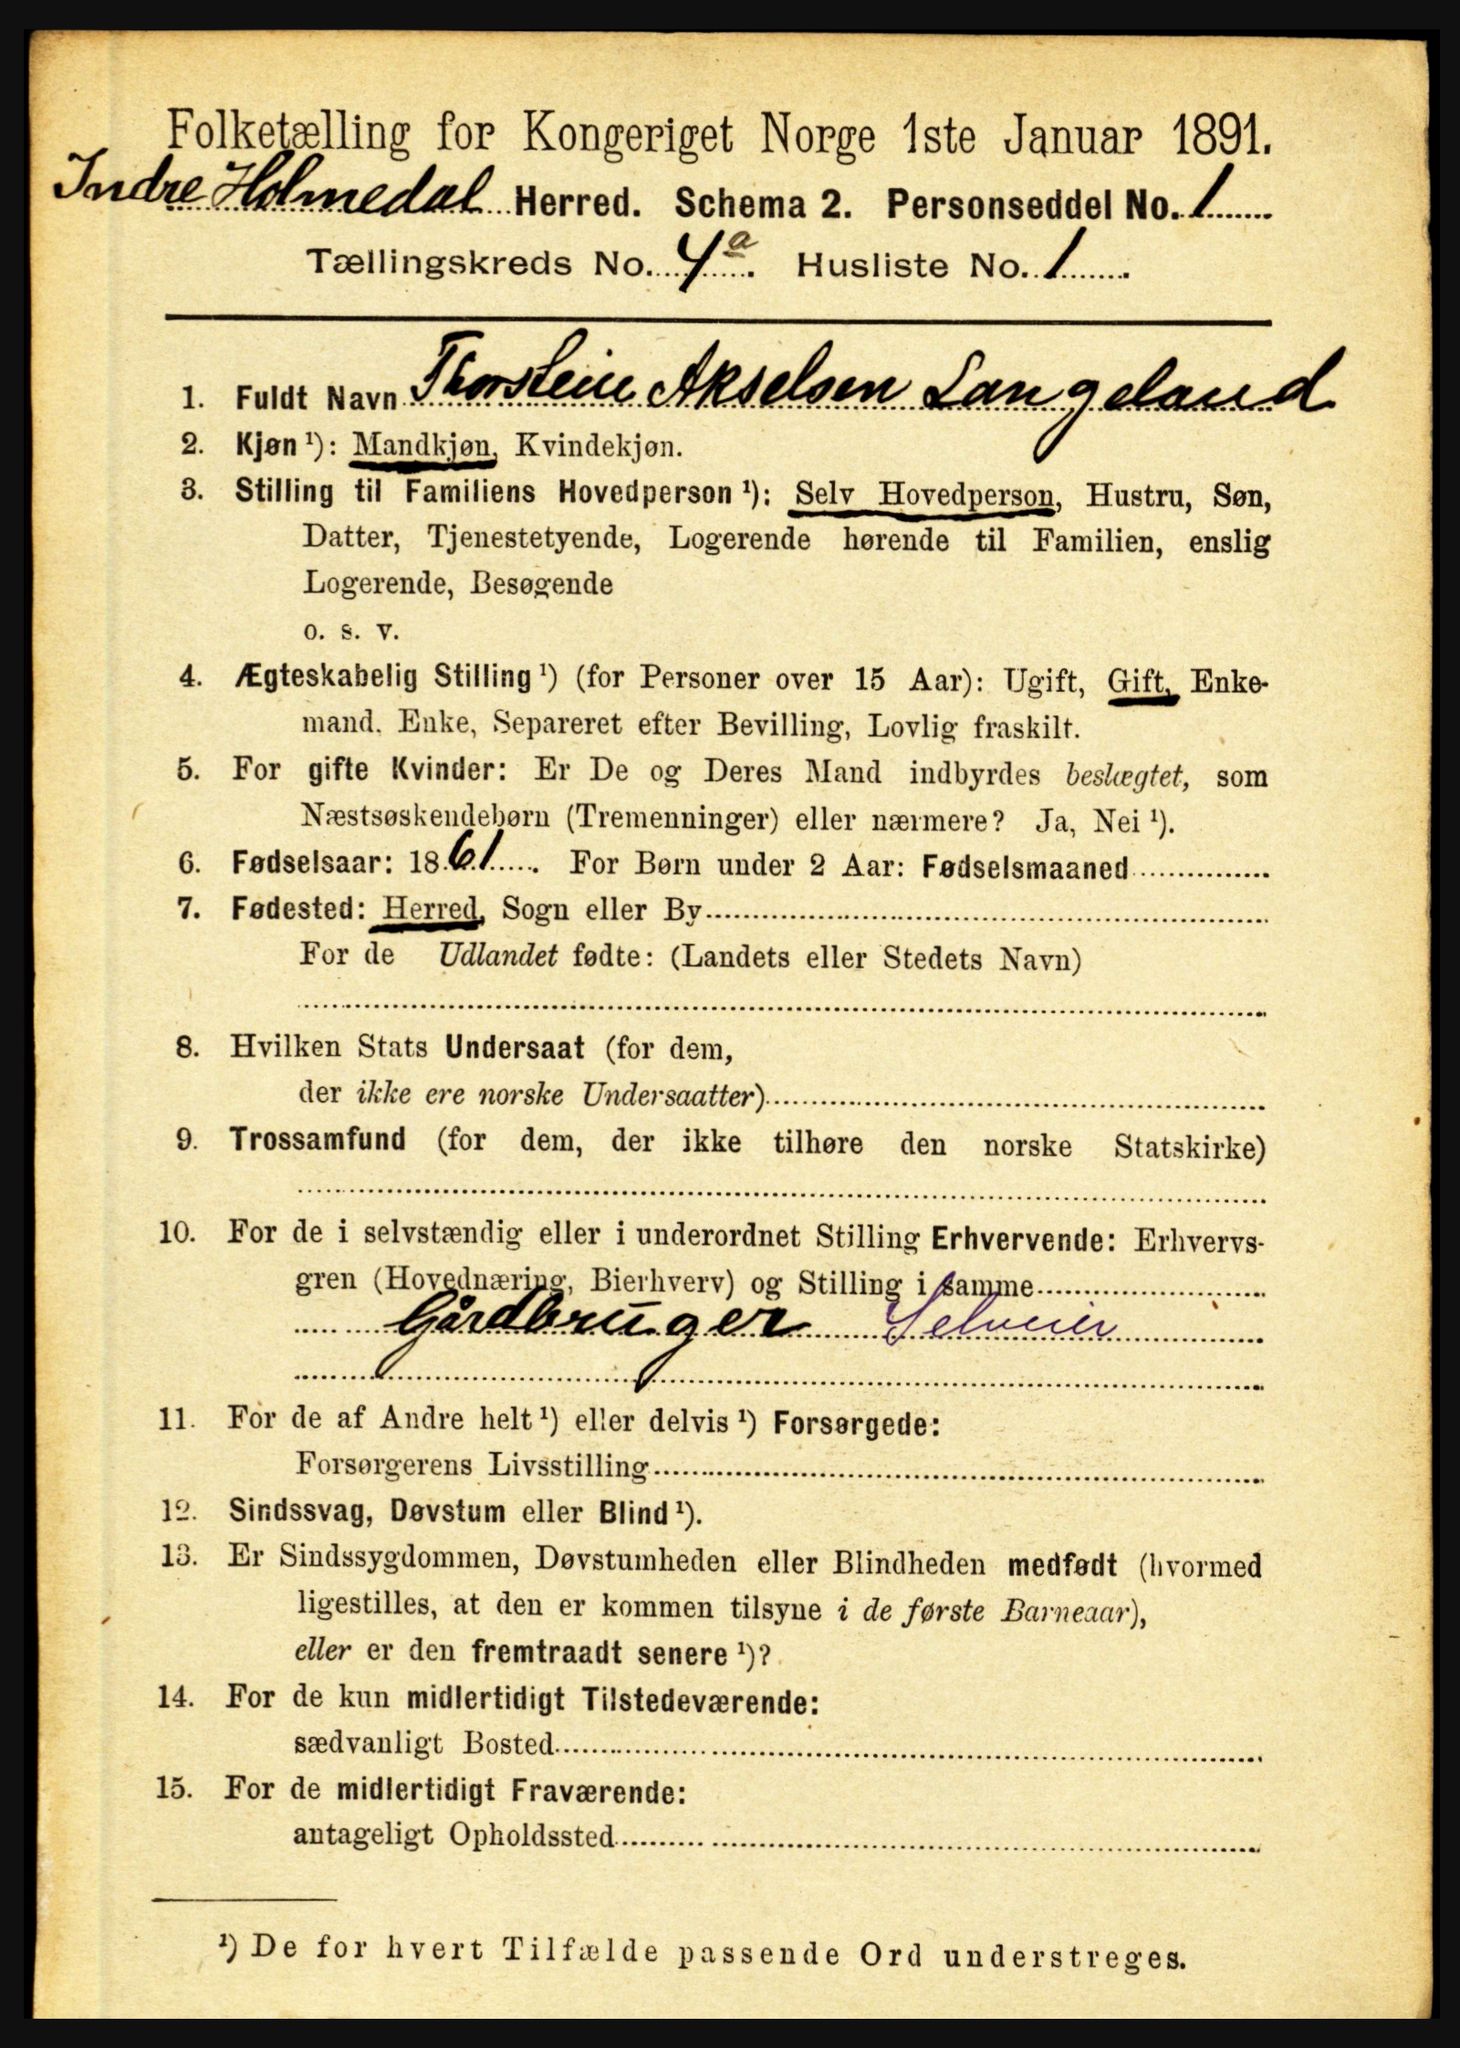 Folketælling for Kongeriget Norge 1ste Januar 1891.
Indre Holmedal Herred. Schema 2. Personseddel No. 1
Tællingskreds No. 4a. Husliste No. 1
1. Fuldt Navn Thorstein Akselsen Langeland
2. Kjøn ¹): Mandkjøn, Kvindekjøn.
3. Stilling til Familiens Hovedperson ¹): Selv Hovedperson, Hustru, Søn,
Datter, Tjenestetyende, Logerende hørende til Familien, enslig
Logerende, Besøgende
o. s. v.
4. Ægteskabelig Stilling ¹) (for Personer over 15 Aar): Ugift, Gift, Enke-
mand, Enke, Separeret efter Bevilling, Lovlig fraskilt.
5. For gifte Kvinder: Er De og Deres Mand indbyrdes beslægtet, som
Næstsøskendebørn (Tremenninger) eller nærmere? Ja, Nei ¹).
6. Fødselsaar: 1861. For Børn under 2 Aar: Fødselsmaaned
7. Fødested: Herred, Sogn eller By
For de Udlandet fødte: (Landets eller Stedets Navn)
8. Hvilken Stats Undersaat (for dem,
der ikke ere norske Undersaatter)
9. Trossamfund (for dem, der ikke tilhøre den norske Statskirke)
10. For de i selvstændig eller i underordnet Stilling Erhvervende: Erhvervs-
gren (Hovednæring, Bierhverv) og Stilling i samme
Gårdbruger Selveier
11. For de af Andre helt ¹) eller delvis ¹) Forsørgede:
Forsørgerens Livsstilling
12. Sindssvag, Døvstum eller Blind ¹).
13. Er Sindssygdommen, Døvstumheden eller Blindheden medfødt (hvormed
ligestilles, at den er kommen tilsyne i de første Barneaar),
eller er den fremtraadt senere ¹)?
14. For de kun midlertidigt Tilstedeværende:
sædvanligt Bosted
15. For de midlertidigt Fraværende:
antageligt Opholdssted
¹) De for hvert Tilfælde passende Ord understreges.